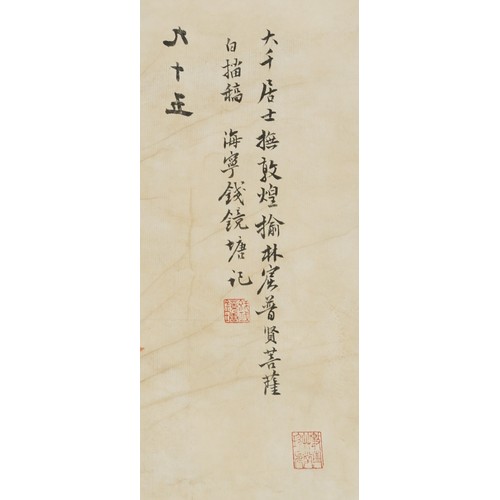 大千居士撫敦煌榆林窟普贤菩薩
白描稿 海宁錢鏡塘记
九十五